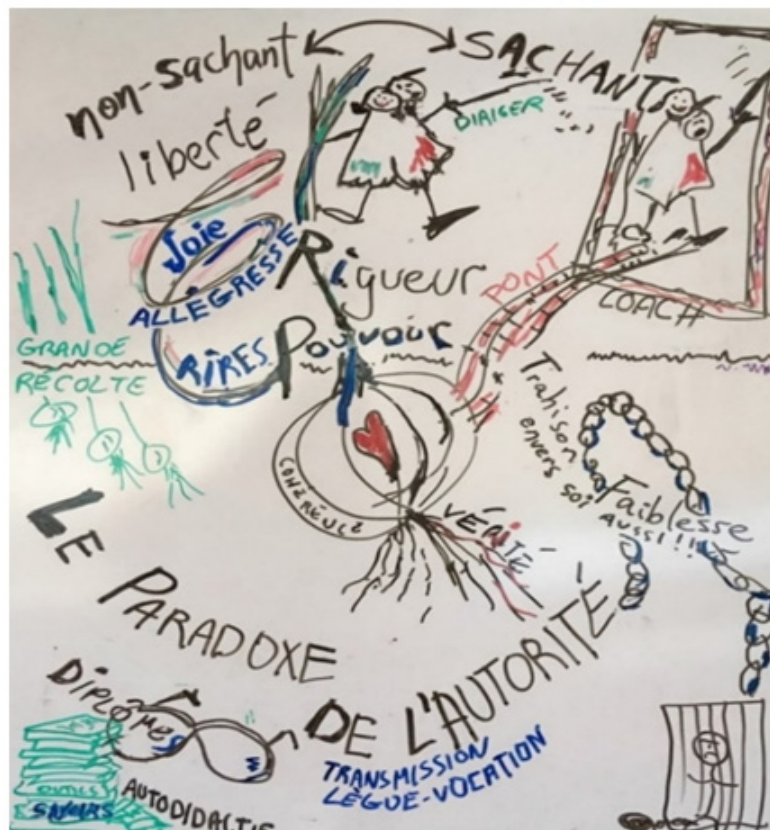 non-sachant
SACHANT
liberté
DIRIGER
Joie
ALLÉGRESSE
Rigueur
PONT
COACH
GRANDE
RÉCOLTE
RIRES
Pouvoir
Trahison
envers
soi AUSSI !!
Faiblesse
COHÉRENCE
VÉRITÉ
LE PARADOXE
DE L'AUTORITÉ
DIPLÔMES
TRANSMISSION
LÈGUE-VOCATION
SAVOIRS
AUTODIDACTIE